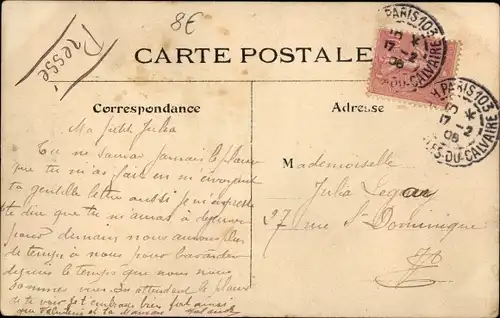 8€
Pressé
CARTE POSTALE
PARIS 103
17-2
06
DU-CALVAIRE
PARIS 103
17-2
06
DU-CALVAIRE
Correspondance
Adresse
Ma petite Julia
Tu ne sauras jamais le plaisir
que tu m'as fait en m'envoyant
ta gentille lettre aussi je m'empresse
te dire que tu m'auras à déjeuner
pour demain nous aurons plus
de temps à nous pour bavarder
depuis le temps que nous nous
sommes vues. En attendant le plaisir
de te voir je t'embrasse bien fort ainsi
que Valentine et ta Maman
Mademoiselle
Julia Legay
27 rue St Dominique